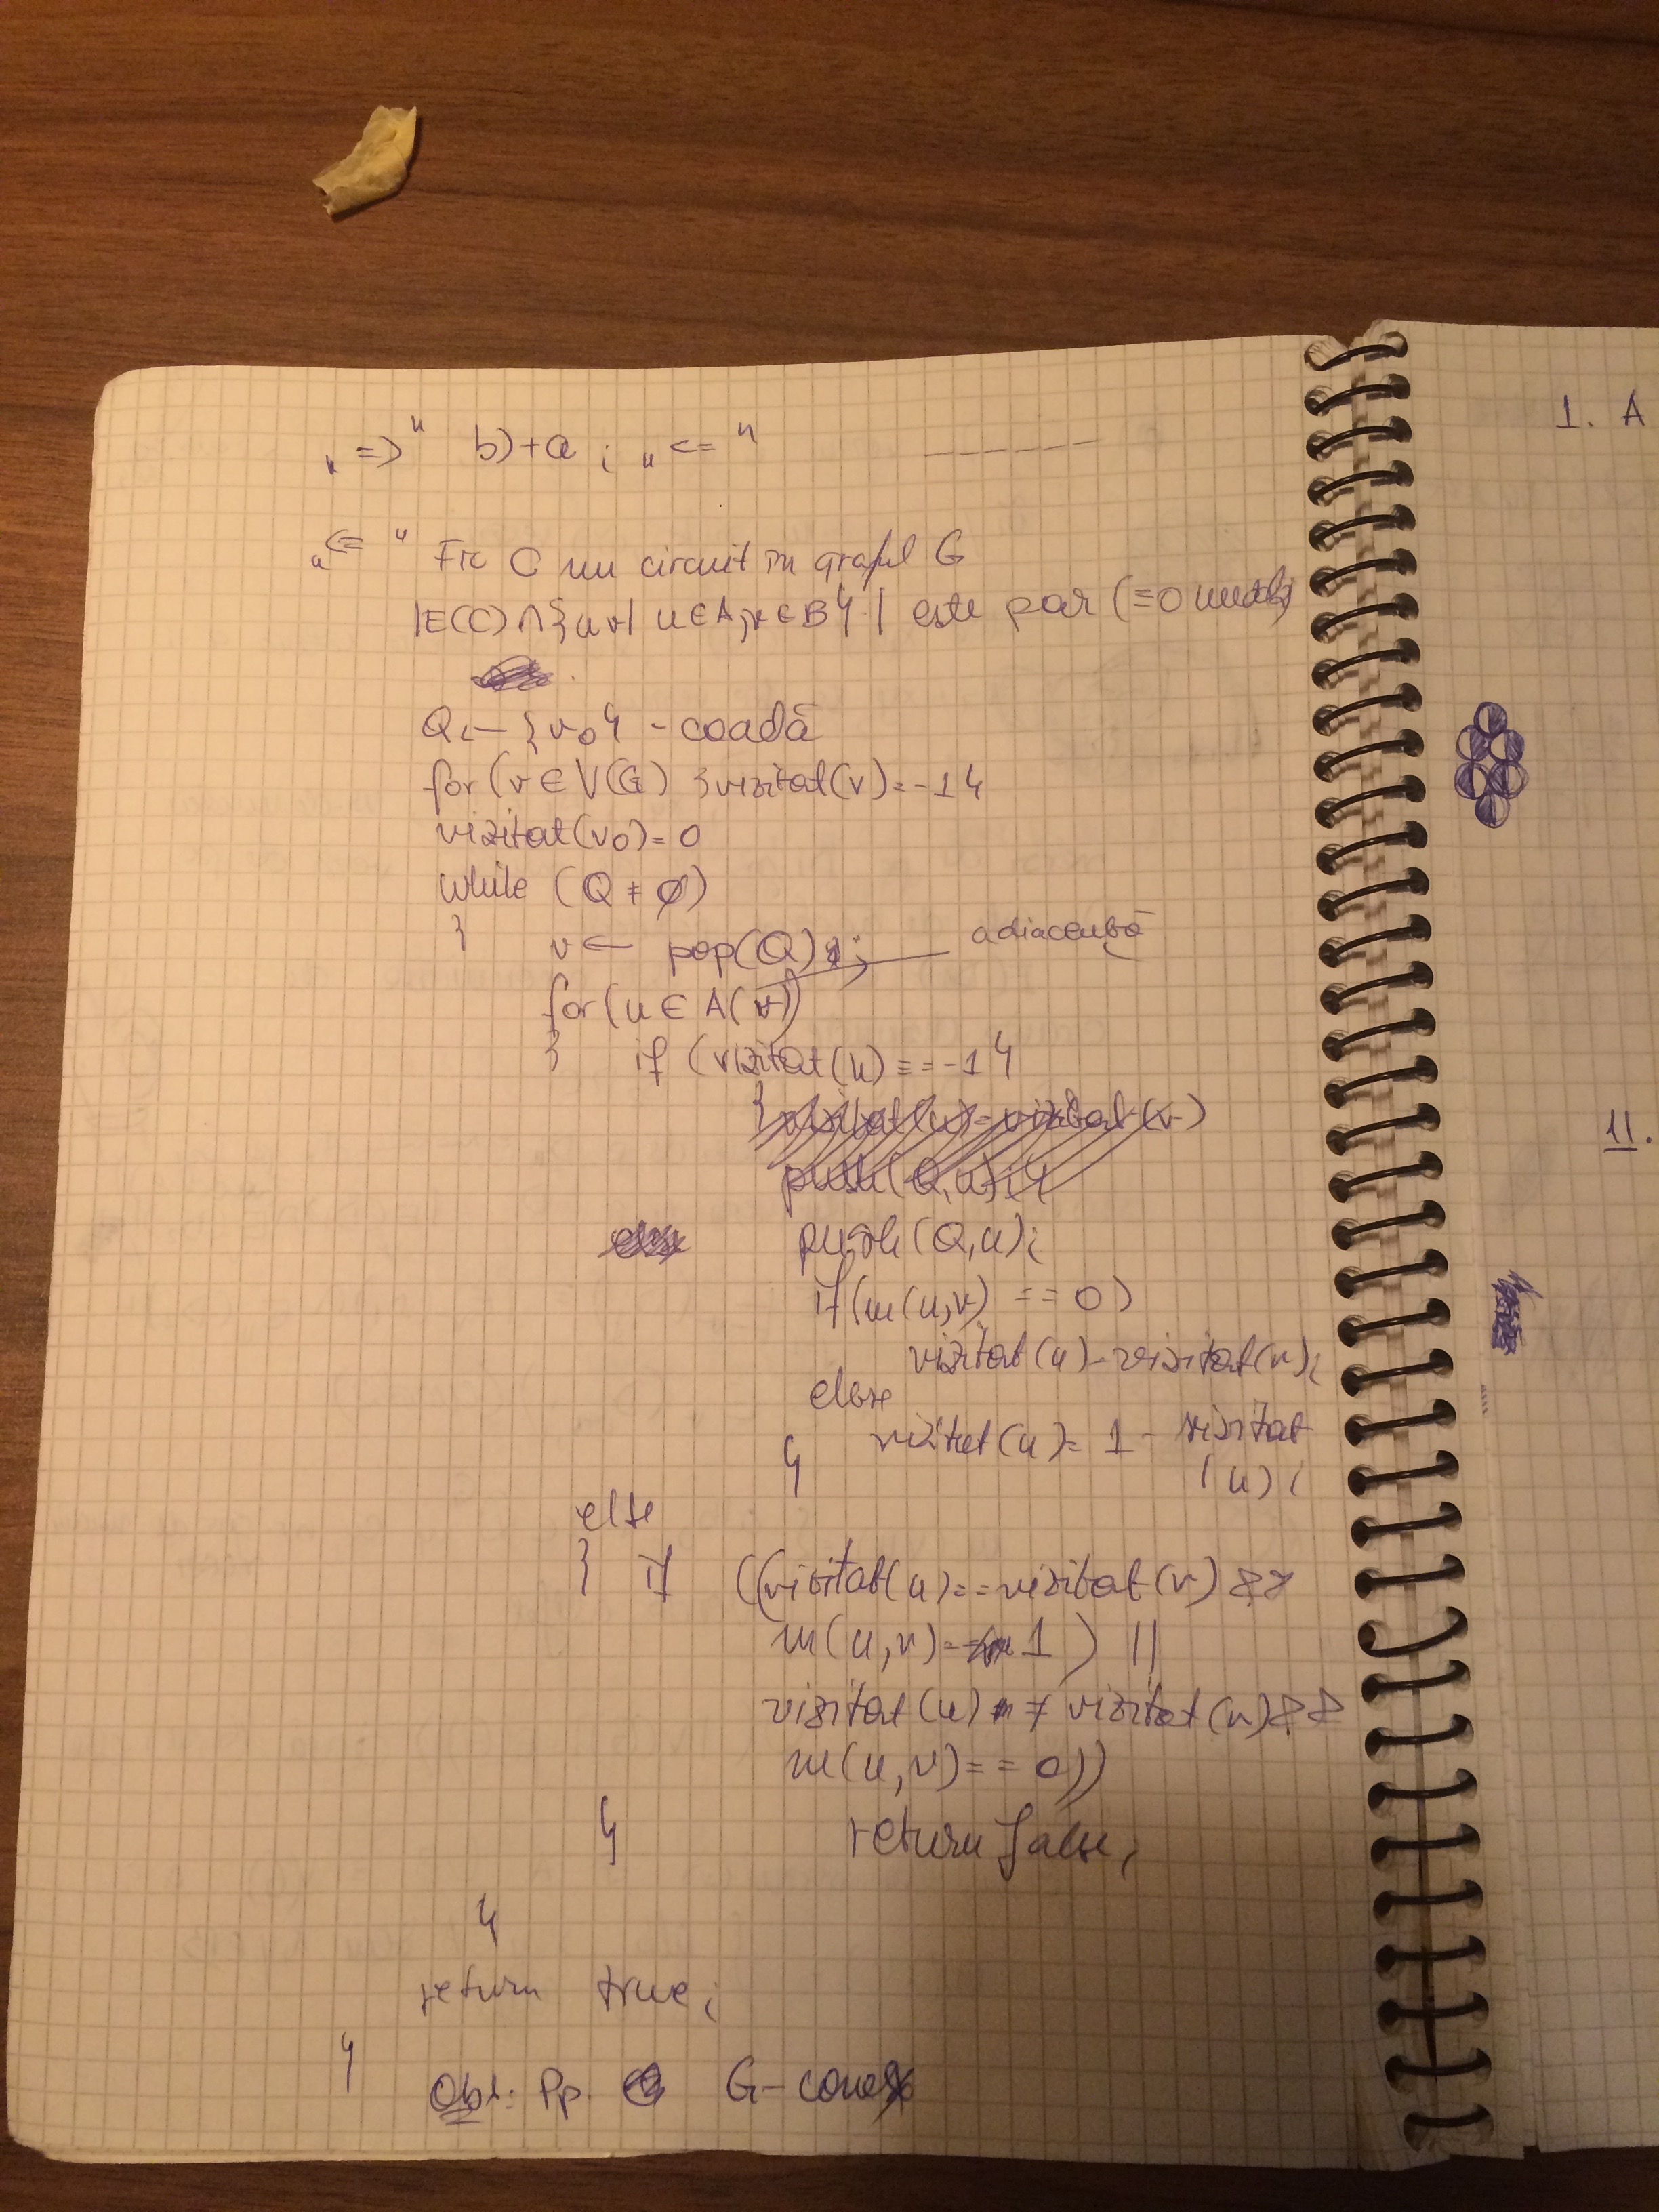 „=>" b)+a ; „<="
„<=" Fie C un circuit în graful G
|E(C)∩{uv| u∈A, v∈B}| este par (≡0 mod 2)
Q ← {v0} - coadă
for (v ∈ V(G)) {vizitat(v)=-1}
vizitat(v0)=0
while (Q ≠ ∅)
{ v ← pop(Q);
adiacență
for (u ∈ A(v))
{ if (vizitat(u) == -1)
{ vizitat(u)=vizitat(v)
push(Q,u);}
push(Q,u);
if(m(u,v) == 0)
vizitat(u)=vizitat(v);
else
vizitat(u)= 1 - vizitat
(u);
}
else
{ if ((vizitat(u)==vizitat(v) &&
m(u,v)== 1) ||
vizitat(u) ≠ vizitat(v) &&
m(u,v)== 0))
} return false;
}
return true;
}
Obs: Pp. G-conex
1. A
11.